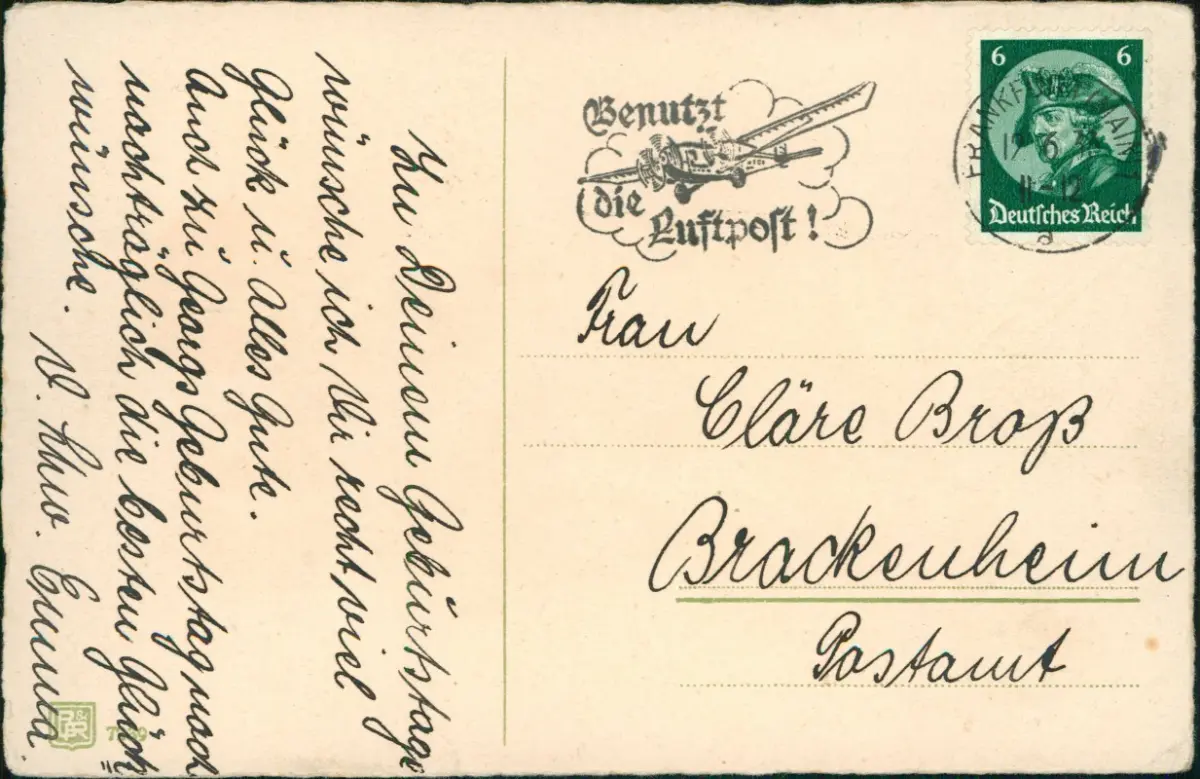 Zu Deinem Geburtstage
wünsche ich Dir recht viel
Glück u. Alles Gute.
Auch zu Georgs Geburtstag noch
nachträglich die besten Glück
wünsche.
Emma.
Benutzt
die
Luftpost!
6 6
Deutsches Reich
FRANKFURT (MAIN) 1
11-12
a
Frau
Cläre Broß
Brackenheim
Postamt